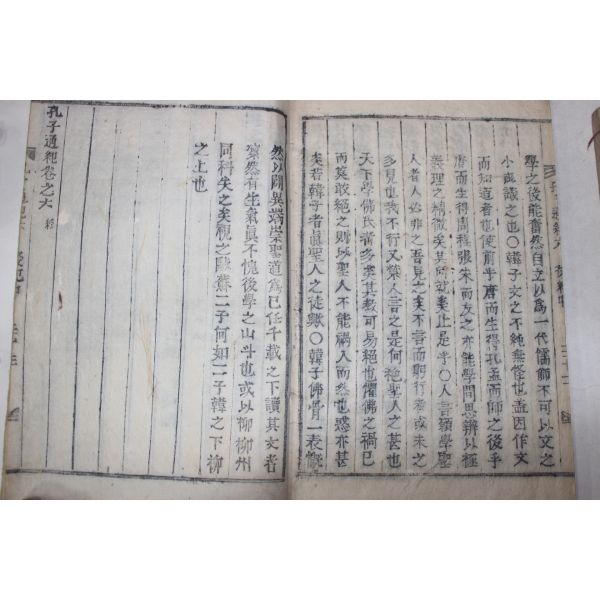 學之後能奮然自立以爲一代儒師不可以文之
小技識之也○韓子文之不純無怪也盖因作文
而知道者也使前乎唐而生得孔孟而師之後乎
唐而生得周程張朱而友之亦能學問思辨以極
義理之精微矣其所就止是乎○人言類學聖
人者人必非之吾見之矣不言而躬行者或未之
多見也我不行又禁人言之是何絶聖人之甚也
天下學佛氏者多矣其敎可易絶也懼佛之禍已
而莫敢絶之則以聖人不能禍人而然也惑亦甚
矣若韓子者眞聖人之徒歟○韓子佛骨一表慨
然以闢異端崇聖道爲己任千載之下讀其文者
凜然有生氣眞不愧後學之山斗也或以柳柳州
同科矣之矣視之歐蘇二子何如二子韓之下柳
之上也
孔子通紀卷之六 終